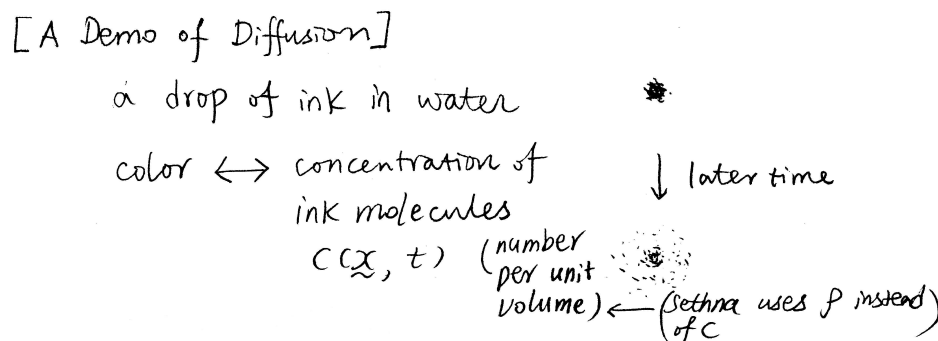 [A Demo of Diffusion]
a drop of ink in water
color ↔ concentration of
ink molecules
↓ later time
C(x̰, t) (number
per unit
volume) ← (Sethna uses ρ instead
of C)